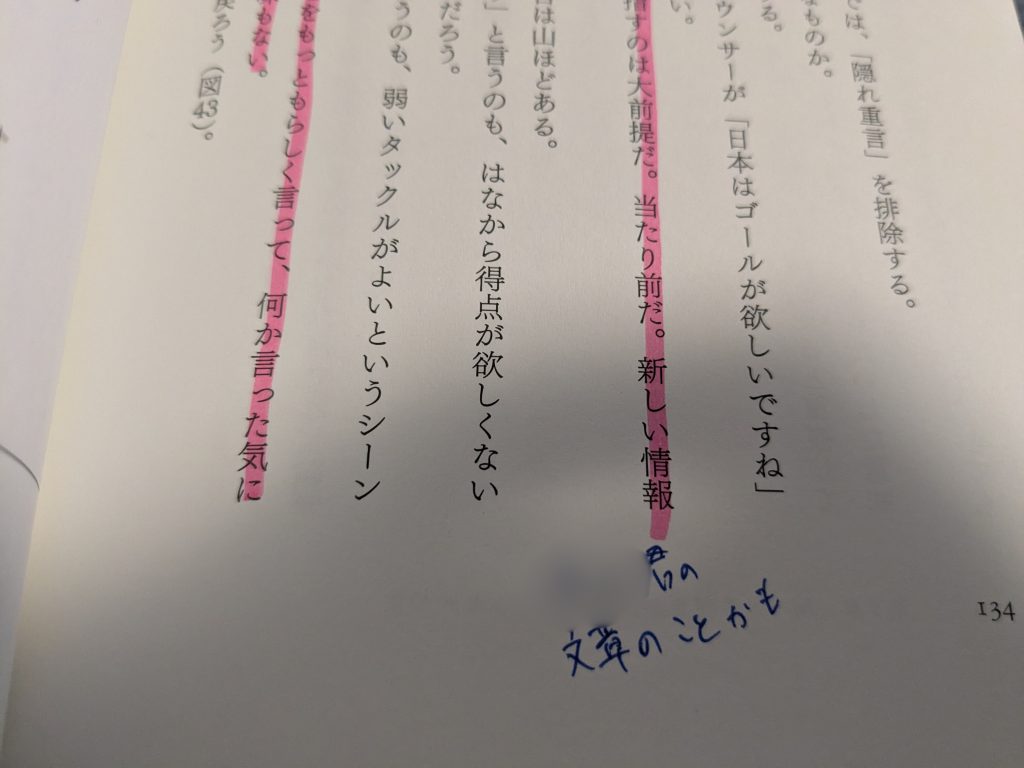 では、「隠れ重言」を排除する。
なものか。
る。
ウンサーが「日本はゴールが欲しいですね」
い。
指すのは大前提だ。当たり前だ。新しい情報
は山ほどある。
」と言うのも、はなから得点が欲しくない
だろう。
うのも、弱いタックルがよいというシーン
をもっともらしく言って、何か言った気に
もない。
戻ろう（図43）。
君の
文章のことかも
134